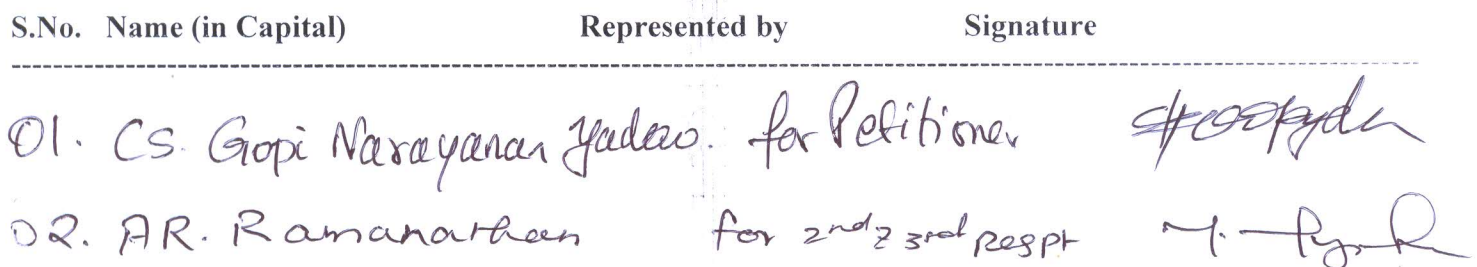 S.No. Name (in Capital) Represented by Signature
01. CS. Gopi Narayanan Yadav. for Petitioner
02. AR. Ramanathan for 2nd & 3rd Respt